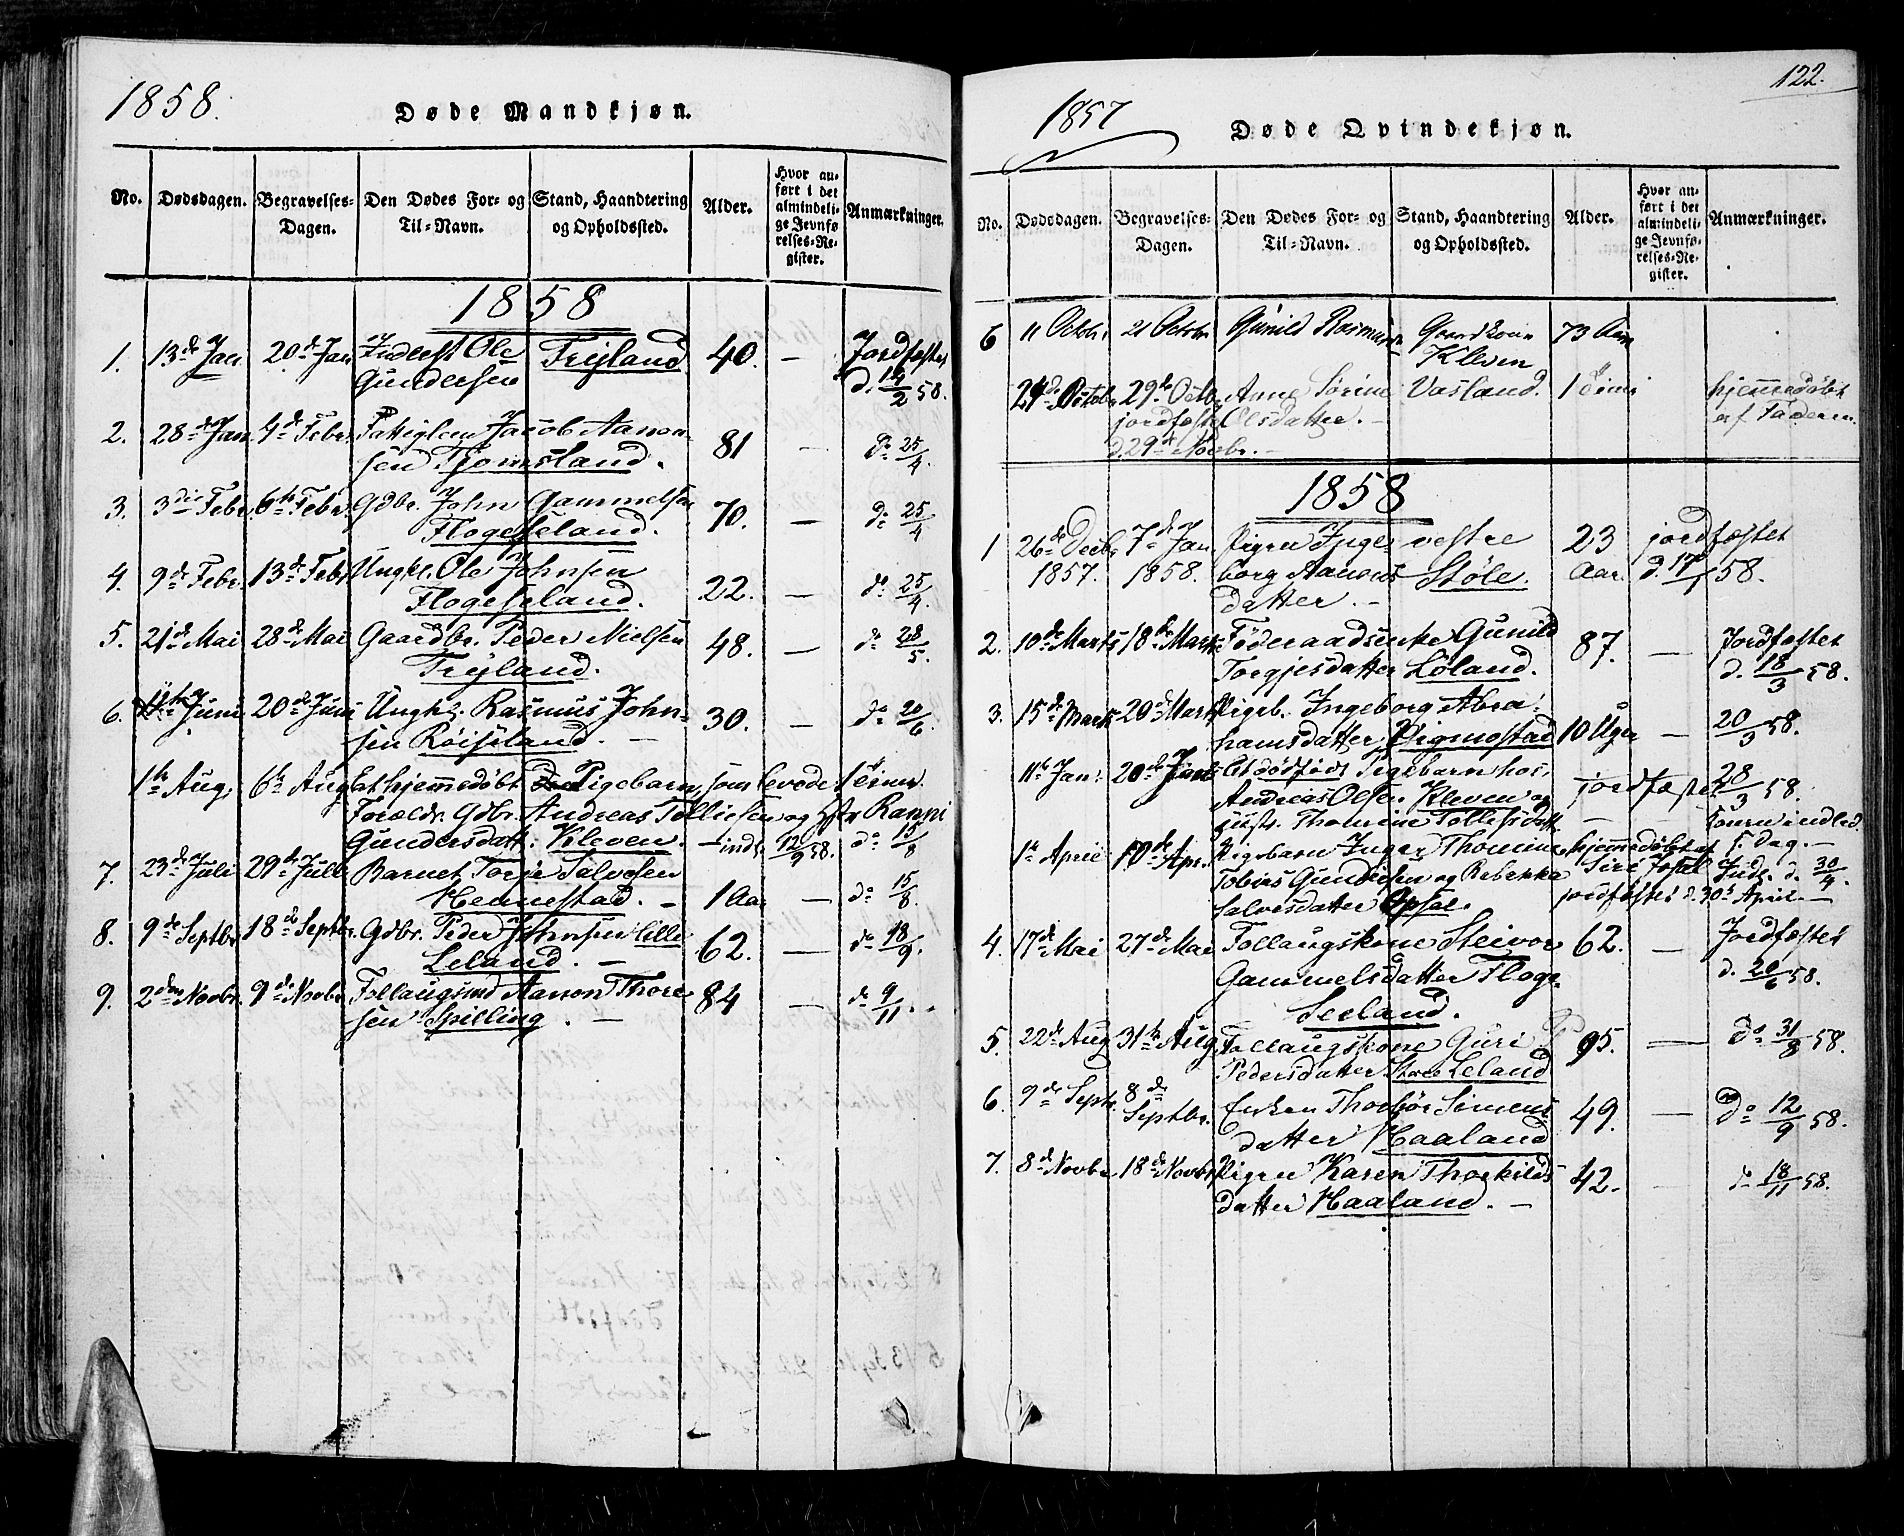 1858.
Døde Mandkjøn.
No. Dødsdagen. Begravelses-Dagen. Den Dødes For- og Til-Navn. Stand, Haandtering og Opholdssted. Alder. Hvor anført i det almindelige Jevnførelses-Register. Anmærkninger.
1858
1. 13de Jan 20de Jan Inderst Ole Trÿland 40. — Jordfæstet
Gundersen d. 14/2 58.
2. 28de Jan 4de Febr. Fattiglem Jacob Aanon- 81 — do 25/4.
sen Tjomsland.
3. 3die Febr. 6te Febr. Gdbr. John Gammelsen 70. — do 25/4
Flogesseland.
4. 9de Febr. 13de Febr Ungkl. Ole Johnsen 22. — do 25/4.
Flogesseland.
5. 21de Mai 28de Mai Gaardbr. Peder Nielsen 48. — do 28/5.
Trÿland.
6. 11te Juni 20de Juni Ungkl. Rasmus John- 30. — do 20/6.
sen Röiseland. —
1te Aug. 6te Aug Et hjemmedøbt Pigebarn, som levede 1 Time.
Forældr. Gdbr. Andreas Tolliesen og Hstr Ranni
Gundersdatt. Kleven. — indl. 12/9 58. do 15/8
7. 23de Juli 29de Juli Barnet Torje Salvesen
Hennestad. — 1 Aar — do 15/8.
8. 9de Septbr 18de Septbr. Gdbr. Peder Johnsen lille 62. — do 18/9.
Leland. —
9. 2den Novbr. 9de Novbr. Follaugsmd Aanon Thore- 84 — do 9/11.
sen Spilling. —
122.
1857
Døde Qvindekjøn.
No. Dødsdagen. Begravelses-Dagen. Den Dødes For- og Til-Navn. Stand, Haandtering og Opholdssted. Alder. Hvor anført i det almindelige Jevnførelses-Register. Anmærkninger.
6 11 Octbr. 21 Octbr Gunild Rasmusd. Gaardkone 73 Aar
Kleven
24de Octobr 29de Octb. Anne Sørine Vasland. 1 Time hjemmedøbt
jordfæstet Olsdatter. — af Faderen.
d. 29de Novbr. —
1858
1 26de Decbr 7de Jan Pigen Inge- vestre 23 jordfæstet
1857. 1858. borg Aanons- Støle. Aar. d. 17/1 58.
datter. —
2. 10de Marts 18de Marts Föderaadsenke Gunild 87. — Jordfæstet
Torgjesdatter Löland. d. 18/3 58.
3. 15de Marts 20de Marts Pigeb. Ingeborg Abra- 10 Uger — 20/3 58.
hamsdatter Vigmostad
11te Jan. 20de Et dødfødt Pigebarn hos jordfæstet 28/3 58.
Andreas Olsen Kleven og
Hustr. Thomine Tollefsdatt.
1te April 10de Apr. Pigebarn Inger Thomine hjemmedøbt af
Tobias Gundersen og Rebekka Siri Indb. d. 30/4.
Salvesdatter Opsal. jordfæstet d. 30te April —
4. 17de Mai 27de Mai Follaugskone Steivor 62. — Jordfæstet
Gammelsdatter Floge- d. 20/6 58.
Seeland.
5. 22de Aug 31te Aug Follaugskone Guri 95. — do 31/8 58.
Pedersdatter Store Leland
6. 9de Septr. 8de Enken Thorbör Simens- 49. — Do 12/9 58.
Septbr. datter Haaland
7. 8de Novbr 18de Novbr. Pigen Karen Thorkilds- 42. — do 18/11 58.
datter Haaland. —